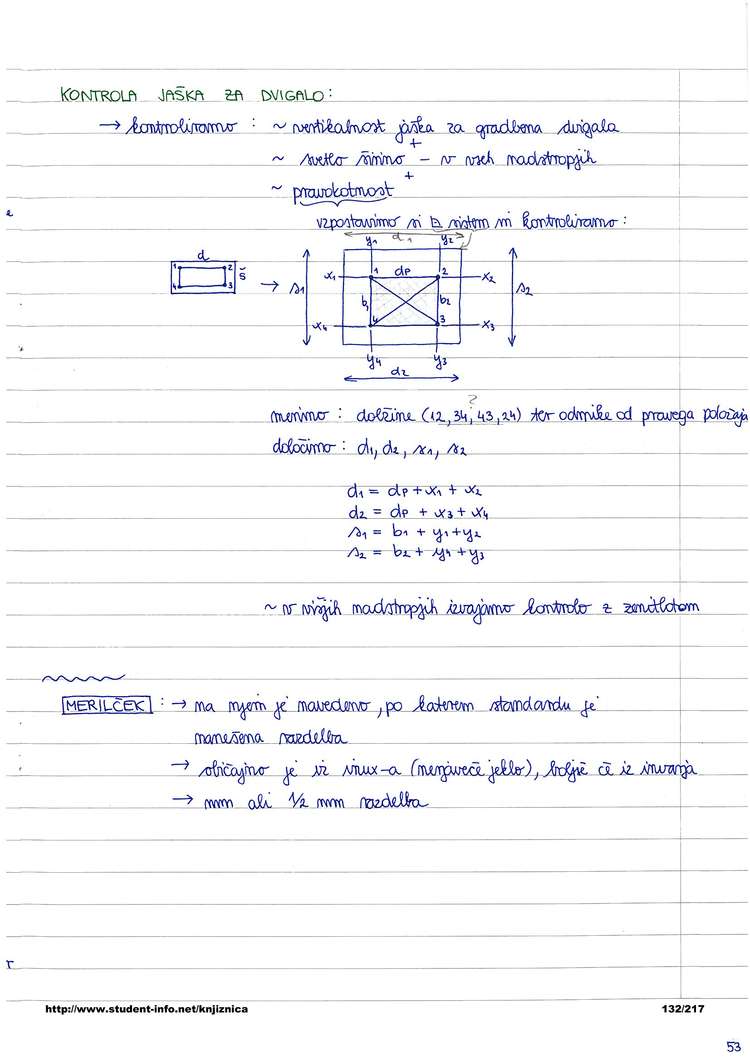 KONTROLA JAŠKA ZA DVIGALO:
→ kontroliramo : ~ vertikalnost jaška za gradbena dvigala
+
~ svetlo širino - v vseh nadstropjih
+
~ pravokotnost
e
vzpostavimo si sistem in kontroliramo:
d1
y1 y2
d
1 2
4 3
š
→
s1
x1 1 dp 2 x2
b1 b2
x4 4 3 x3
s2
y4 y3
d2
?
merimo : dolžine (12, 34, 43, 24) ter odmike od pravega položaja
določimo : d1, d2, s1, s2
d1 = dp + x1 + x2
d2 = dp + x3 + x4
s1 = b1 + y1 + y2
s2 = b2 + y4 + y3
~ v višjih nadstropjih izvajamo kontrolo z zenitlotom
MERILČEK : → na njem je navedeno, po katerem standardu je
nanešena razdelba
→ običajno je iz inox-a (nerjaveče jeklo), boljše če iz invarja
→ mm ali 1/2 mm razdelba
r
http://www.student-info.net/knjiznica
132/217
53